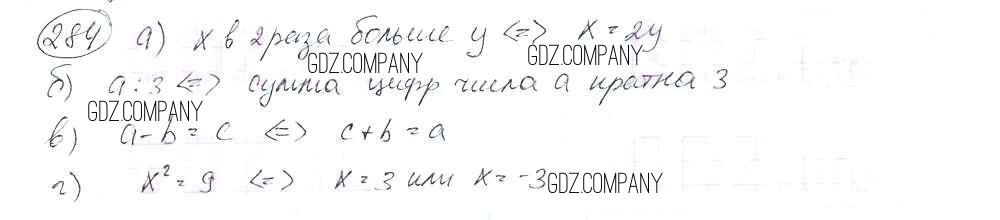 284 а) x в 2 раза больше y <=> x = 2y
GDZ.COMPANY GDZ.COMPANY
б) a : 3 <=> сумма цифр числа a кратна 3
GDZ.COMPANY
в) a - b = c <=> c + b = a
г) x² = 9 <=> x = 3 или x = -3 GDZ.COMPANY